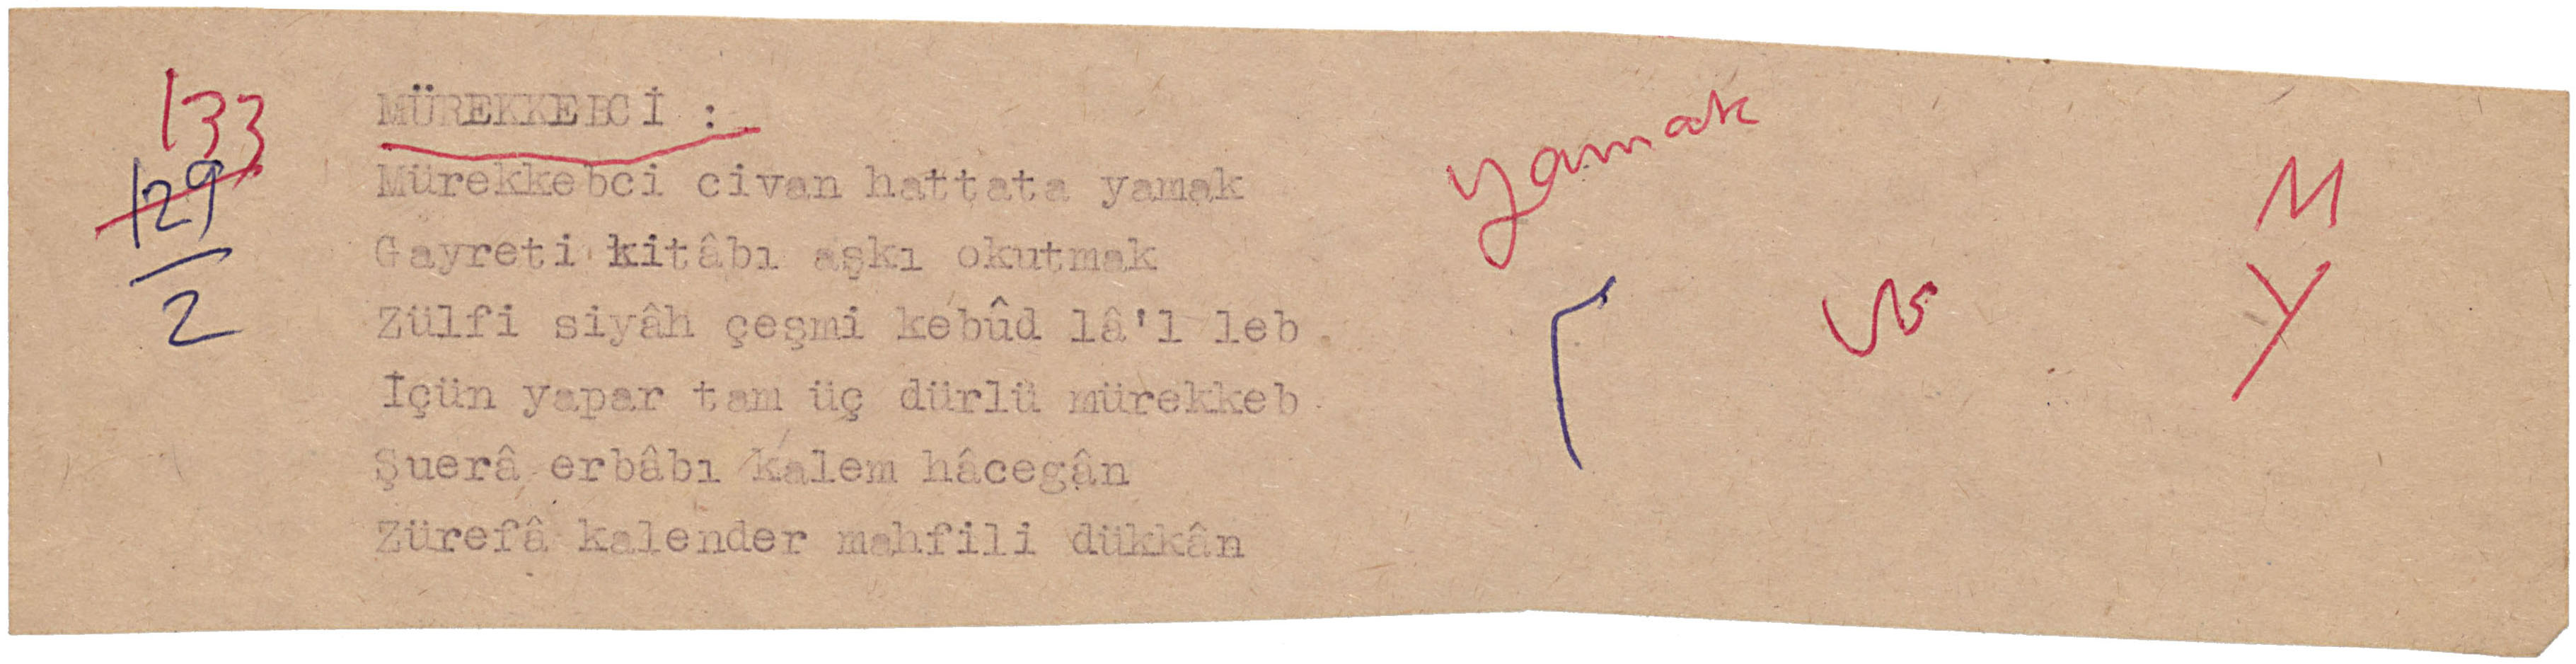 133
129
2
MÜREKKEBCİ :
Mürekkebci civan hattata yamak
Gayreti kitâbı aşkı okutmak
Zülfi siyâh çeşmi kebûd lâ'l leb
İçün yapar tam üç dürlü mürekkeb
Şuerâ erbâbı kalem hâcegân
Zürefâ kalender mahfili dükkân
yamak
M
Y